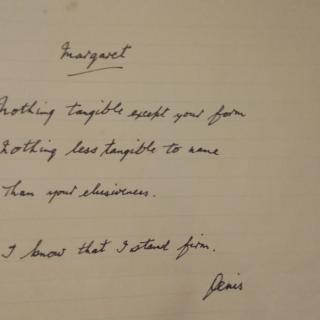 Margaret
Nothing tangible except your form
Nothing less tangible to name
Than your elusiveness.
I know that I stand firm.
Denis